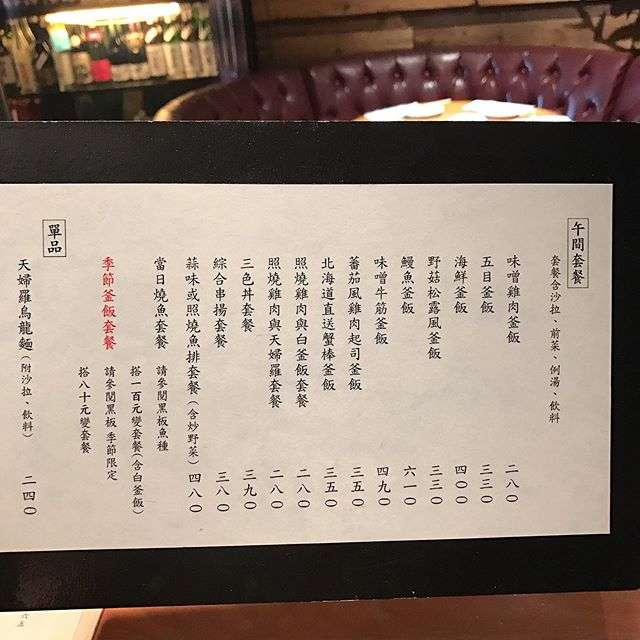 午間套餐
套餐含沙拉、前菜、例湯、飲料
味噌雞肉釜飯 二八〇
五目釜飯 三三〇
海鮮釜飯 四〇〇
野菇松露風釜飯 三三〇
鰻魚釜飯 六一〇
味噌牛筋釜飯 四九〇
蕃茄風雞肉起司釜飯 三五〇
北海道直送蟹棒釜飯 三五〇
照燒雞肉與白釜飯套餐 二八〇
照燒雞肉與天婦羅套餐 二八〇
三色丼套餐 三九〇
綜合串揚套餐 三八〇
蒜味或照燒魚排套餐(含炒野菜) 四八〇
當日燒魚套餐 請參閱黑板魚種
搭一百元變套餐(含白釜飯)
季節釜飯套餐 請參閱黑板季節限定
搭八十元變套餐
單品
天婦羅烏龍麵(附沙拉、飲料) 二四〇